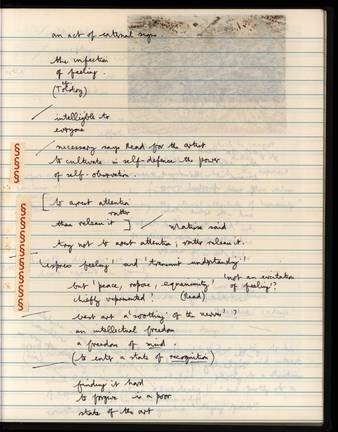 an act of external signs
the infection
of feeling.
(Tolstoy)
intelligible to
everyone
necessary says Read for the artist
to cultivate in self-defence the power
of self-observation.
[ to arrest attention
rather
than release it ]
Matisse said
try not to arrest attention; rather release it.
'express feeling' and 'transmit understanding'.
'not an excitation
but 'peace, repose, equanimity' of feeling'?
chiefly represented? (Read)
best art a 'soothing of the nerves'?
an intellectual freedom
a freedom of mind.
(to enter a state of recognition)
finding it hard
to forgive is a poor
state of the art